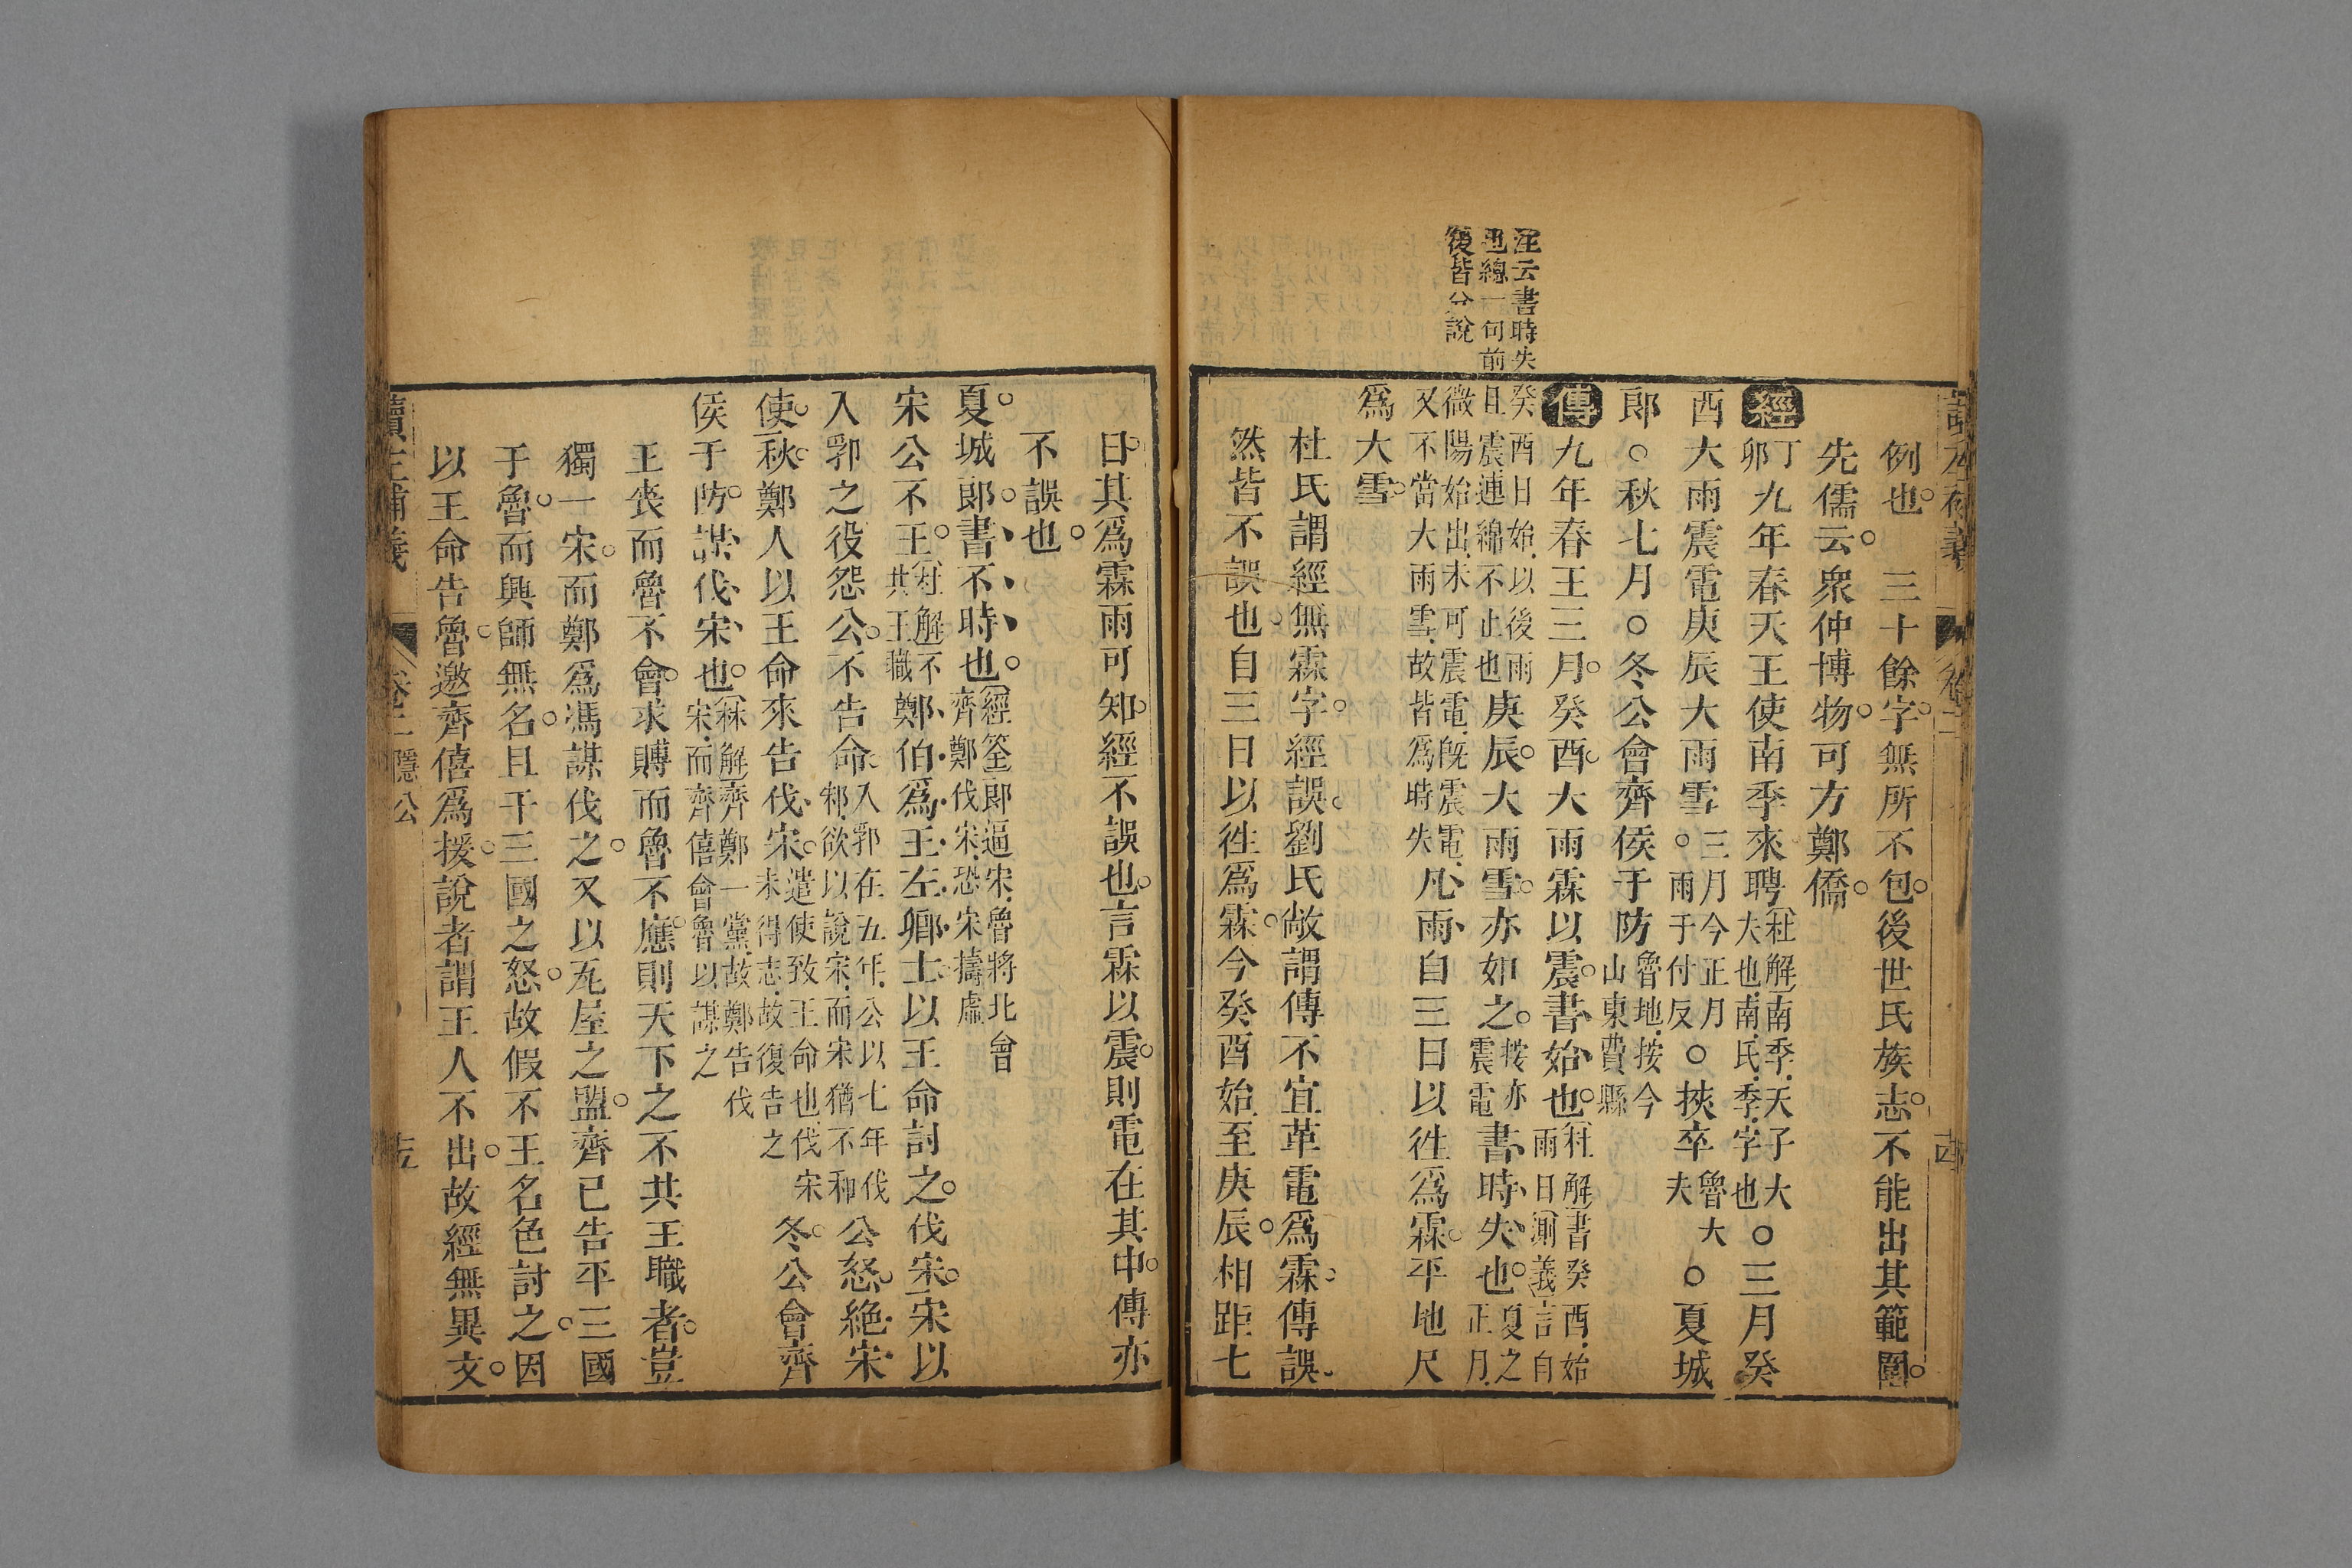 例也三十餘字無所不包後世氏族志不能出其範圍
先儒云衆仲博物可方鄭僑
經丁卯九年春天王使南季來聘杜解南季天子大夫也南氏季字也○三月癸
酉大雨震電庚辰大雨雪三月今正月○雨于付反○挾卒魯大夫○夏城
郎○秋七月○冬公會齊侯于防魯地按今山東費縣
傳九年春王三月癸酉大雨霖以震書始也杜解書癸酉始雨日測義言自
癸酉日始以後雨且震連綿不止也庚辰大雨雪亦如之按亦震電書時失也夏之正月
微陽始出未可震電旣震電又不當大雨雪故皆爲時失凡雨自三日以徃爲霖平地尺
爲大雪
注云書時失
也總一句前
後皆分說
杜氏謂經無霖字經誤劉氏敞謂傳不宜革電爲霖傳誤
然皆不誤也自三日以徃爲霖今癸酉始至庚辰相距七
讀左補義
卷二
日其爲霖雨可知經不誤也言霖以震則電在其中傳亦
不誤也
夏城郎書不時也經筌郎逼宋魯將北會齊鄭伐宋恐宋擣虛
宋公不王杜解不共王職鄭伯爲王左卿士以王命討之伐宋宋以
入郛之役怨公不告命入郛在五年公以七年伐邾欲以說宋而宋猶不和公怒絶宋
使秋鄭人以王命來告伐宋遣使致王命也伐宋未得志故復告之冬公會齊
侯于防謀伐宋也林解齊鄭一黨故鄭告伐宋而齊僖會魯以謀之
王喪而魯不會求賻而魯不應則天下之不共王職者豈
獨一宋而鄭爲馮謀伐之又以瓦屋之盟齊已告平三國
于魯而興師無名且干三國之怒故假不王名色討之因
以王命告魯邀齊僖爲援說者謂王人不出故經無異文
讀左補義
卷二隱公